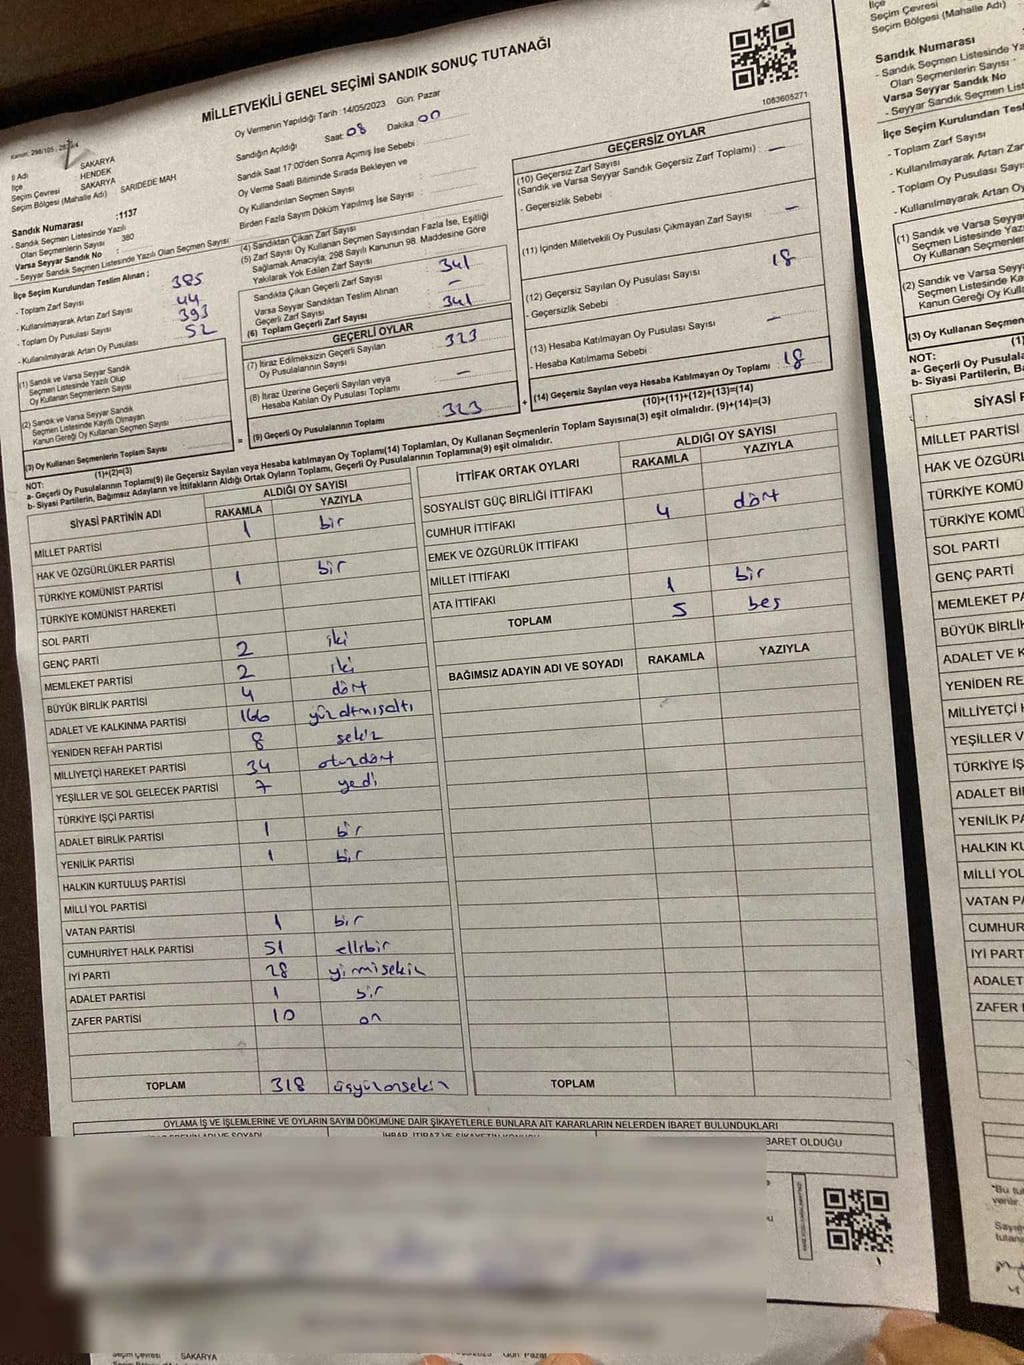 MİLLETVEKİLİ GENEL SEÇİMİ SANDIK SONUÇ TUTANAĞI
Oy Vermenin Yapıldığı Tarih :14/05/2023 Gün: Pazar
1083605271
İl Adı SAKARYA
İlçe HENDEK
Seçim Çevresi SAKARYA
Seçim Bölgesi (Mahalle Adı) SARIDEDE MAH
Sandık Numarası :1137
- Sandık Seçmen Listesinde Yazılı
Olan Seçmenlerin Sayısı 380
Varsa Seyyar Sandık No
- Seyyar Sandık Seçmen Listesinde Yazılı Olan Seçmen Sayısı
Sandığın Açıldığı Saat: 08 Dakika 00
Sandık Saat 17.00'den Sonra Açımış İse Sebebi
Oy Verme Saati Bitiminde Sırada Bekleyen ve
Oy Kullandırılan Seçmen Sayısı
Birden Fazla Sayım Döküm Yapılmış İse Sayısı
İlçe Seçim Kurulundan Teslim Alınan ;
- Toplam Zarf Sayısı 385
- Kullanılmayarak Artan Zarf Sayısı 44
- Toplam Oy Pusulası Sayısı 393
- Kullanılmayarak Artan Oy Pusulası 52
(1) Sandık ve Varsa Seyyar Sandık
Seçmen Listesinde Yazılı Olup
Oy Kullanan Seçmenlerin Sayısı
(2) Sandık ve Varsa Seyyar Sandık
Seçmen Listesinde Kayıtlı Olmayan
Kanun Gereği Oy Kullanan Seçmen Sayısı
(3) Oy Kullanan Seçmenlerin Toplam Sayısı
(1)+(2)=(3)
(4) Sandıktan Çıkan Zarf Sayısı
(5) Zarf Sayısı Oy Kullanan Seçmen Sayısından Fazla İse, Eşitliği
Sağlamak Amacıyla, 298 Sayılı Kanunun 98. Maddesine Göre
Yakılarak Yok Edilen Zarf Sayısı
Sandıkta Çıkan Geçerli Zarf Sayısı 341
Varsa Seyyar Sandıktan Teslim Alınan
Geçerli Zarf Sayısı –
(6) Toplam Geçerli Zarf Sayısı 341
GEÇERLİ OYLAR
(7) İtiraz Edilmeksizin Geçerli Sayılan
Oy Pusulalarının Sayısı 323
(8) İtiraz Üzerine Geçerli Sayılan veya
Hesaba Katılan Oy Pusulası Toplamı –
(9) Geçerli Oy Pusulalarının Toplamı 323
GEÇERSİZ OYLAR
(10) Geçersiz Zarf Sayısı
(Sandık ve Varsa Seyyar Sandık Geçersiz Zarf Toplamı) –
- Geçersizlik Sebebi
(11) İçinden Milletvekili Oy Pusulası Çıkmayan Zarf Sayısı –
(12) Geçersiz Sayılan Oy Pusulası Sayısı 18
- Geçersizlik Sebebi
(13) Hesaba Katılmayan Oy Pusulası Sayısı –
- Hesaba Katılmama Sebebi
(14) Geçersiz Sayılan veya Hesaba Katılmayan Oy Toplamı 18
(10)+(11)+(12)+(13)=(14)
NOT:
a- Geçerli Oy Pusulalarının Toplamı(9) ile Geçersiz Sayılan veya Hesaba katılmayan Oy Toplam(14) Toplamları, Oy Kullanan Seçmenlerin Toplam Sayısına(3) eşit olmalıdır. (9)+(14)=(3)
b- Siyasi Partilerin, Bağımsız Adayların ve İttifakların Aldığı Ortak Oyların Toplamı, Geçerli Oy Pusulalarının Toplamına(9) eşit olmalıdır.
SİYASİ PARTİNİN ADI ALDIĞI OY SAYISI
RAKAMLA YAZIYLA
MİLLET PARTİSİ 1 bir
HAK VE ÖZGÜRLÜKLER PARTİSİ
TÜRKİYE KOMÜNİST PARTİSİ 1 bir
TÜRKİYE KOMÜNİST HAREKETİ
SOL PARTİ
GENÇ PARTİ 2 iki
MEMLEKET PARTİSİ 2 iki
BÜYÜK BİRLİK PARTİSİ 4 dört
ADALET VE KALKINMA PARTİSİ 166 yüzaltmışaltı
YENİDEN REFAH PARTİSİ 8 sekiz
MİLLİYETÇİ HAREKET PARTİSİ 34 otuzdört
YEŞİLLER VE SOL GELECEK PARTİSİ 7 yedi
TÜRKİYE İŞÇİ PARTİSİ
ADALET BİRLİK PARTİSİ 1 bir
YENİLİK PARTİSİ 1 bir
HALKIN KURTULUŞ PARTİSİ
MİLLİ YOL PARTİSİ
VATAN PARTİSİ 1 bir
CUMHURİYET HALK PARTİSİ 51 ellibir
İYİ PARTİ 28 yirmisekiz
ADALET PARTİSİ 1 bir
ZAFER PARTİSİ 10 on
TOPLAM 318 üçyüzonsekiz
İTTİFAK ORTAK OYLARI ALDIĞI OY SAYISI
RAKAMLA YAZIYLA
SOSYALİST GÜÇ BİRLİĞİ İTTİFAKI
CUMHUR İTTİFAKI 4 dört
EMEK VE ÖZGÜRLÜK İTTİFAKI
MİLLET İTTİFAKI
ATA İTTİFAKI 1 bir
TOPLAM 5 beş
BAĞIMSIZ ADAYIN ADI VE SOYADI RAKAMLA YAZIYLA
TOPLAM
OYLAMA İŞ VE İŞLEMLERİNE VE OYLARIN SAYIM DÖKÜMÜNE DAİR ŞİKAYETLERLE BUNLARA AİT KARARLARIN NELERDEN İBARET BULUNDUKLARI
BARET OLDUĞU
Seçim Çevresi SAKARYA
Gün: Pazar
İlçe
Seçim Çevresi
Seçim Bölgesi (Mahalle Adı)
Sandık Numarası
- Sandık Seçmen Listesinde Ya
Olan Seçmenlerin Sayısı
Varsa Seyyar Sandık No
- Seyyar Sandık Seçmen List
İlçe Seçim Kurulundan Tesl
- Toplam Zarf Sayısı
- Kullanılmayarak Artan Zar
- Toplam Oy Pusulası Sayıs
- Kullanılmayarak Artan Oy
(1) Sandık ve Varsa Seyya
Seçmen Listesinde Ya
Oy Kullanan Seçmenle
(2) Sandık ve Varsa Sey
Seçmen Listesinde Ka
Kanun Gereği Oy Kulla
(3) Oy Kullanan Seçmen
(1)
NOT:
a- Geçerli Oy Pusulala
b- Siyasi Partilerin, Ba
SİYASİ P
MİLLET PARTİSİ
HAK VE ÖZGÜRL
TÜRKİYE KOMÜ
TÜRKİYE KOMÜ
SOL PARTİ
GENÇ PARTİ
MEMLEKET PA
BÜYÜK BİRLİK
ADALET VE K
YENİDEN RE
MİLLİYETÇİ H
YEŞİLLER V
TÜRKİYE İŞ
ADALET Bİ
YENİLİK PA
HALKIN KU
MİLLİ YOL
VATAN PA
CUMHUR
İYİ PART
ADALET
ZAFER